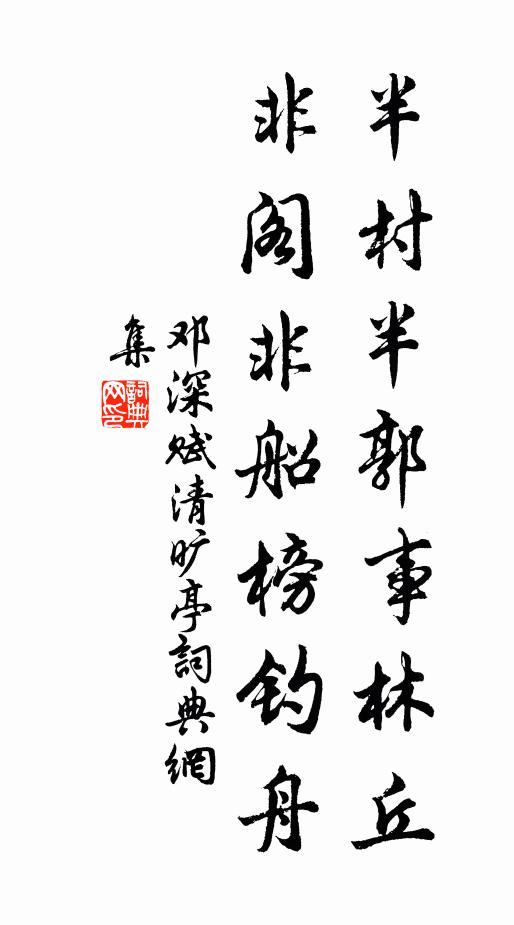 半村半郭事林丘
非阁非船榜钓舟
邓深赋清旷亭詞典網
集
詞典網印